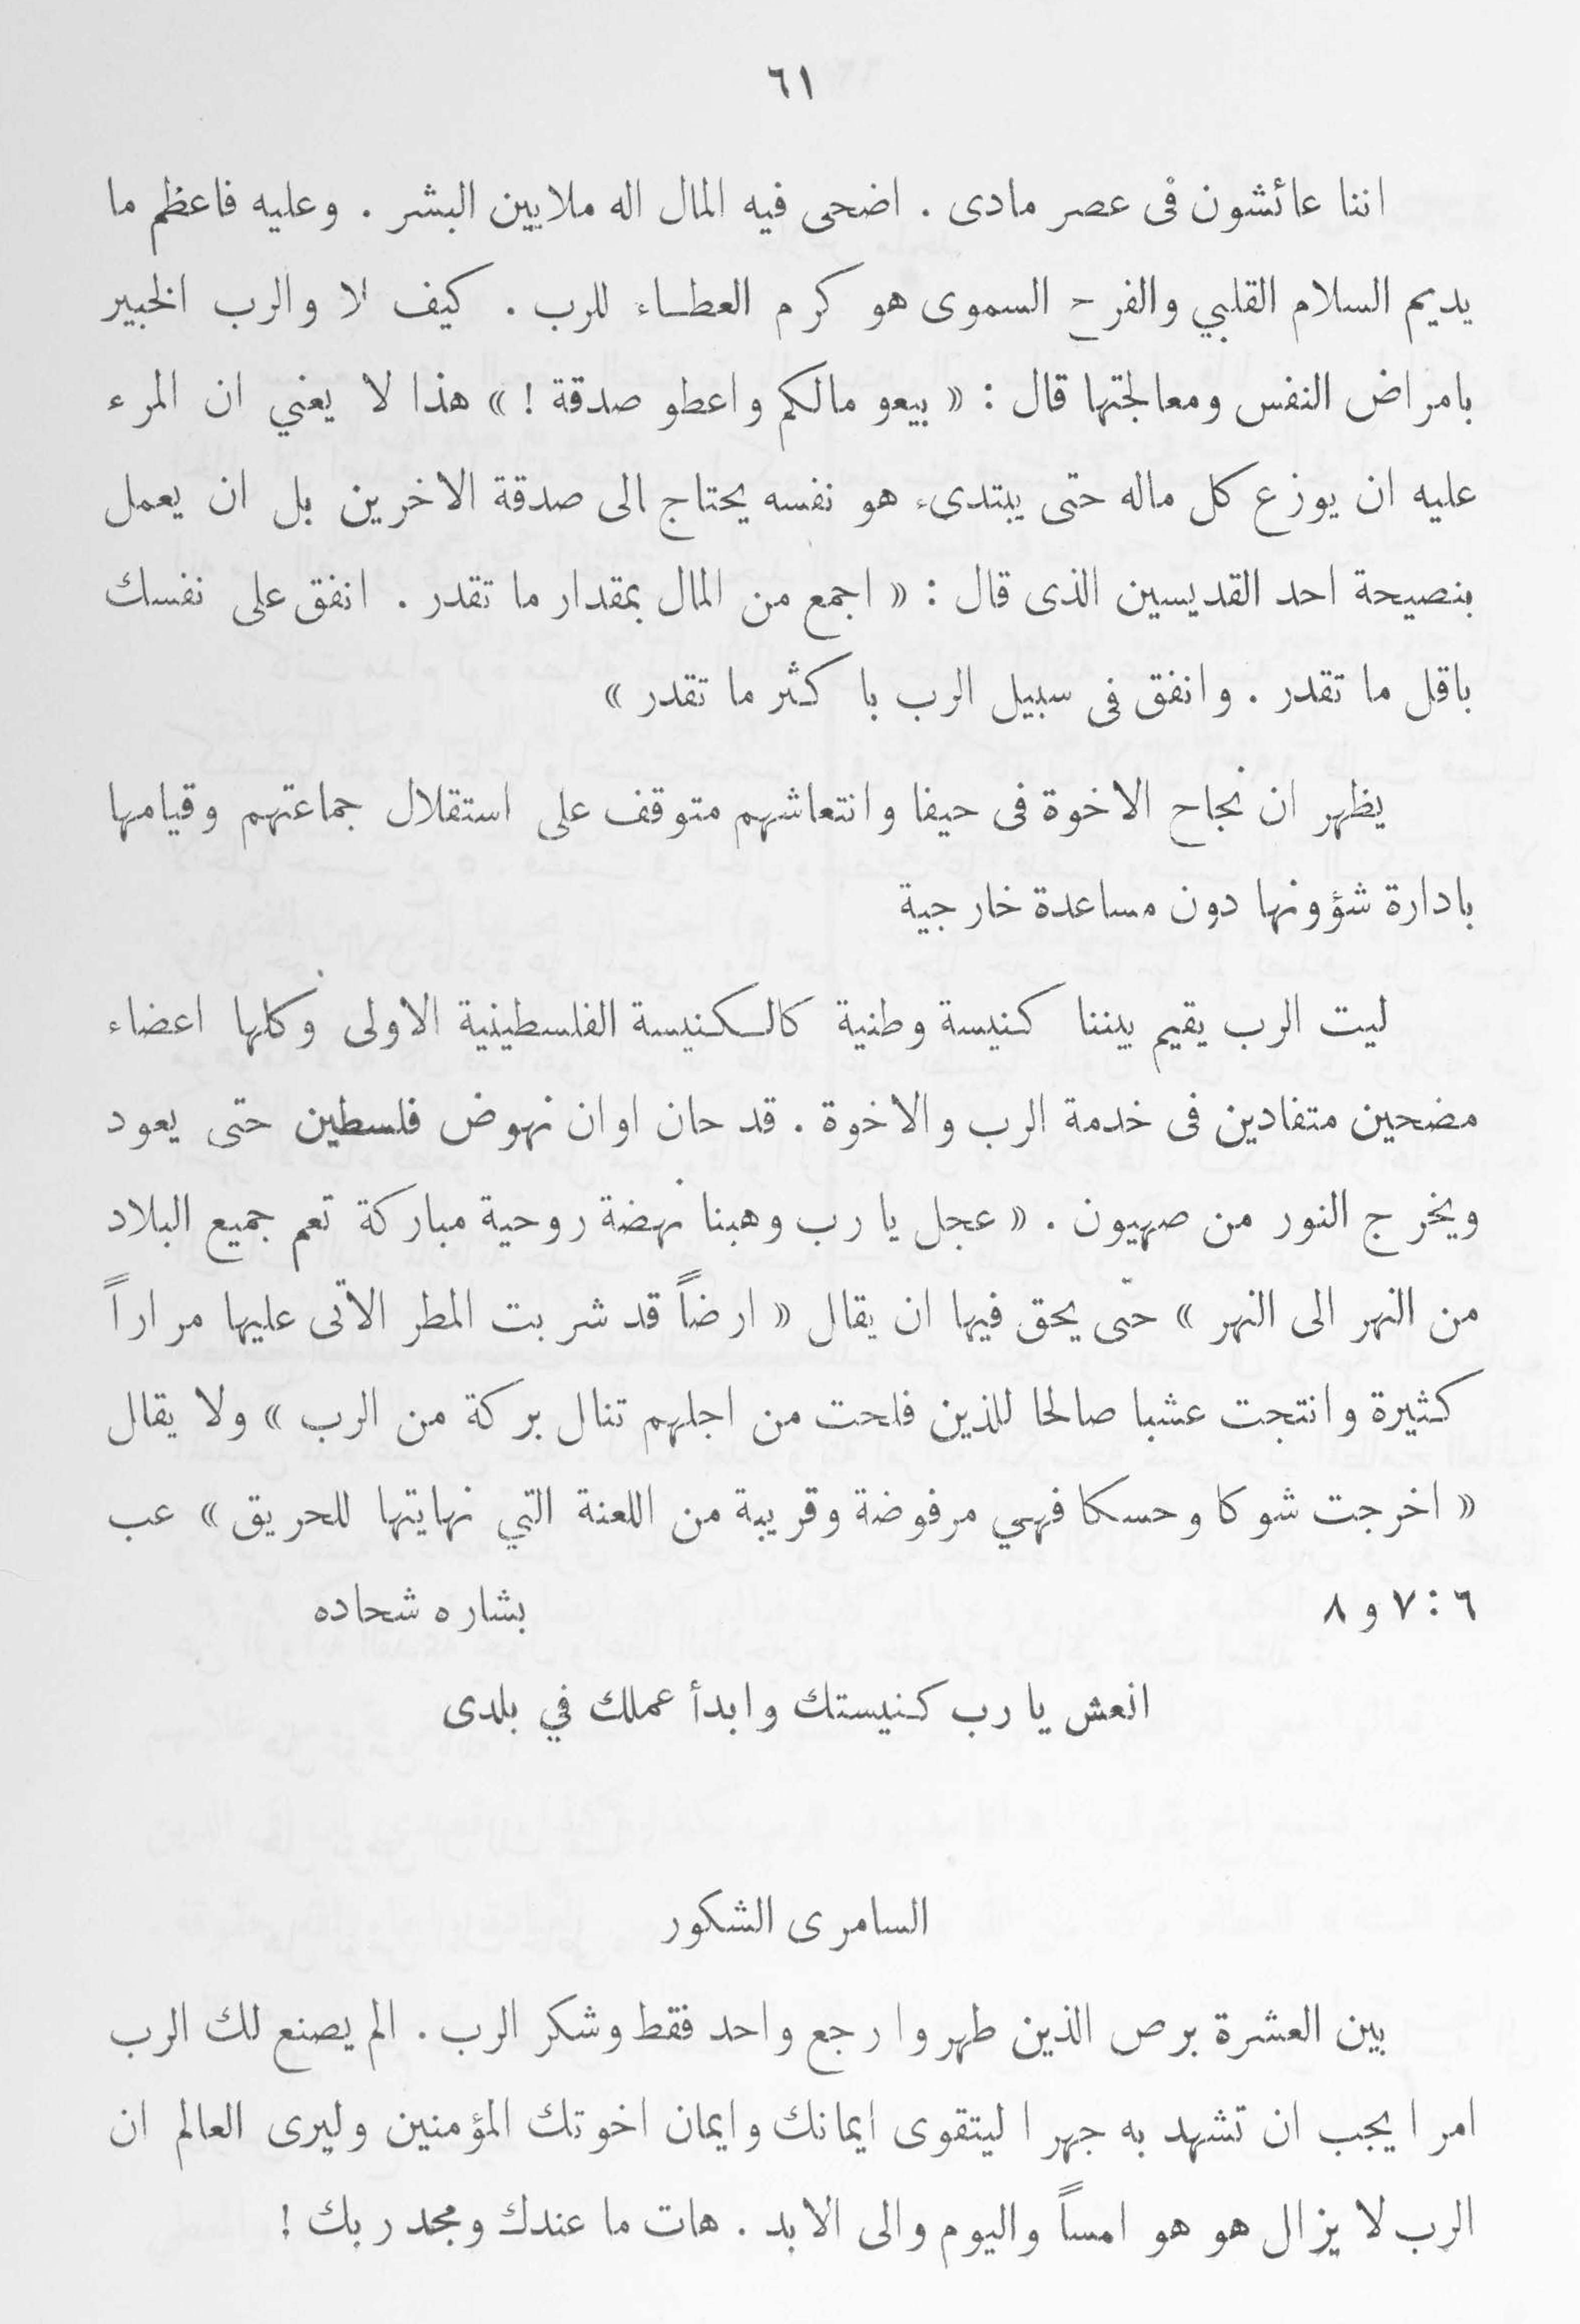 ٦١
اننا عائشون فى عصر مادى . اضحى فيه المال اله ملايين البشر . وعليه فاعظم ما
يديم السلام القلبي والفرح السموى هو كرم العطاء للرب . كيف لا والرب الخبير
بامراض النفس ومعالجتها قال : « بيعو مالكم واعطو صدقة ! » هذا لا يعني ان المرء
عليه ان يوزع كل ماله حتى يبتدىء هو نفسه يحتاج الى صدقة الاخرين بل ان يعمل
بنصيحة احد القديسين الذى قال : « اجمع من المال بمقدار ما تقدر . انفق على نفسك
باقل ما تقدر . وانفق فى سبيل الرب باكثر ما تقدر »
يظهر ان نجاح الاخوة فى حيفا وانتعاشهم متوقف على استقلال جماعتهم وقيامها
بادارة شؤونها دون مساعدة خارجية
ليت الرب يقيم بيننا كنيسة وطنية كالكنيسة الفلسطينية الاولى وكلها اعضاء
مضحين متفادين فى خدمة الرب والاخوة . قد حان اوان نهوض فلسطين حتى يعود
ويخرج النور من صهيون . « عجل يا رب وهبنا نهضة روحية مباركة تعم جميع البلاد
من النهر الى النهر » حتّى يحق فيها ان يقال « ارضاً قد شربت المطر الآتى عليها مراراً
كثيرة وانتجت عشبا صالحا للذين فلحت من اجلهم تنال بركة من الرب » ولا يقال
« اخرجت شوكا وحسكا فهي مرفوضة وقريبة من اللعنة التي نهايتها للحريق » عب
٦ : ٧ و ٨ بشاره شحاده
انعش يا رب كنيستك وابدأ عملك في بلدى
السامرى الشكور
بين العشرة برص الذين طهروا رجع واحد فقط وشكر الرب . الم يصنع لك الرب
امرا يجب ان تشهد به جهرا ليتقوى ايمانك وايمان اخوتك المؤمنين وليرى العالم ان
الرب لا يزال هو هو امساً واليوم والى الابد . هات ما عندك ومجد ربك !